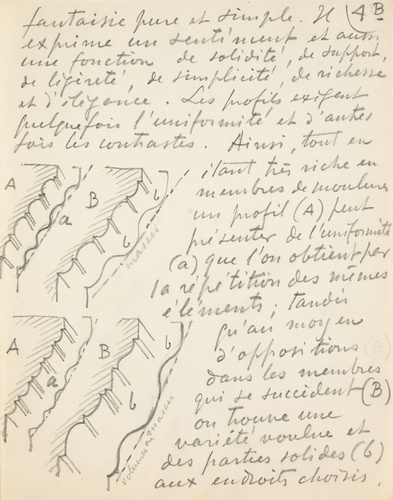 fantaisie pure et simple. Il
4B
exprime un sentiment et aussi
une fonction de solidité, de support,
de légèreté, de simplicité, de richesse
et d'élégance. Les profils exigent
quelquefois l'uniformité et d'autres
fois les contrastes. Ainsi, tout en
étant très riche en
membres de moulures
un profil (A) peut
présenter de l'uniformité
(a) que l'on obtient par
la répétition des mêmes
éléments; tandis
qu'au moyen
d'oppositions
dans les membres
qui se succèdent (B)
on trouve une
variété voulue et
des parties solides (b)
aux endroits choisis.
A
a
B
b
b
masses
A
a
B
b
b
volumes ou masses